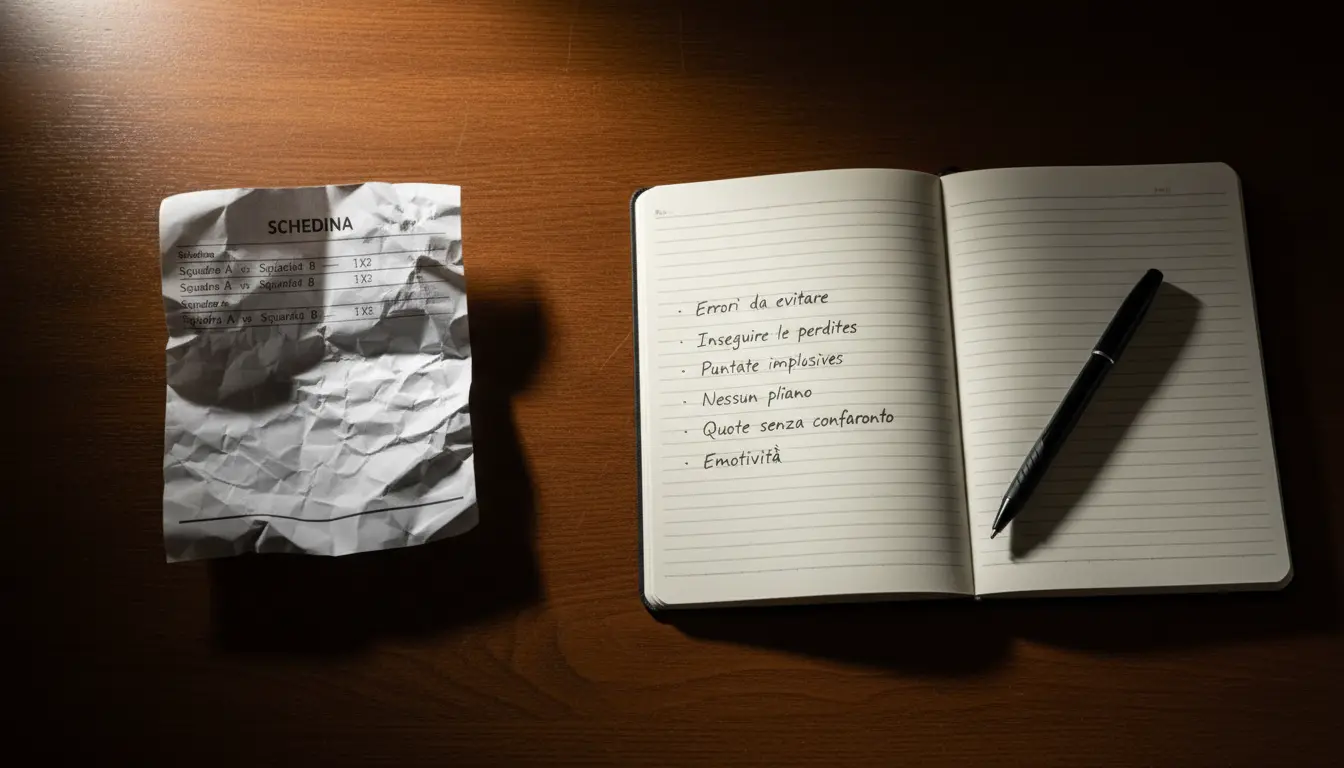 SCHEDINA
Squadra A vs Squadred B — 1X2
Squadra A vs Squanted B — 1X2
A vs Squanted B — 1X2
· Errori da evitare
· Inseguire le perdites
· Puntate implosives
· Nessun pliano
· Quote senza confaronto
· Emotività